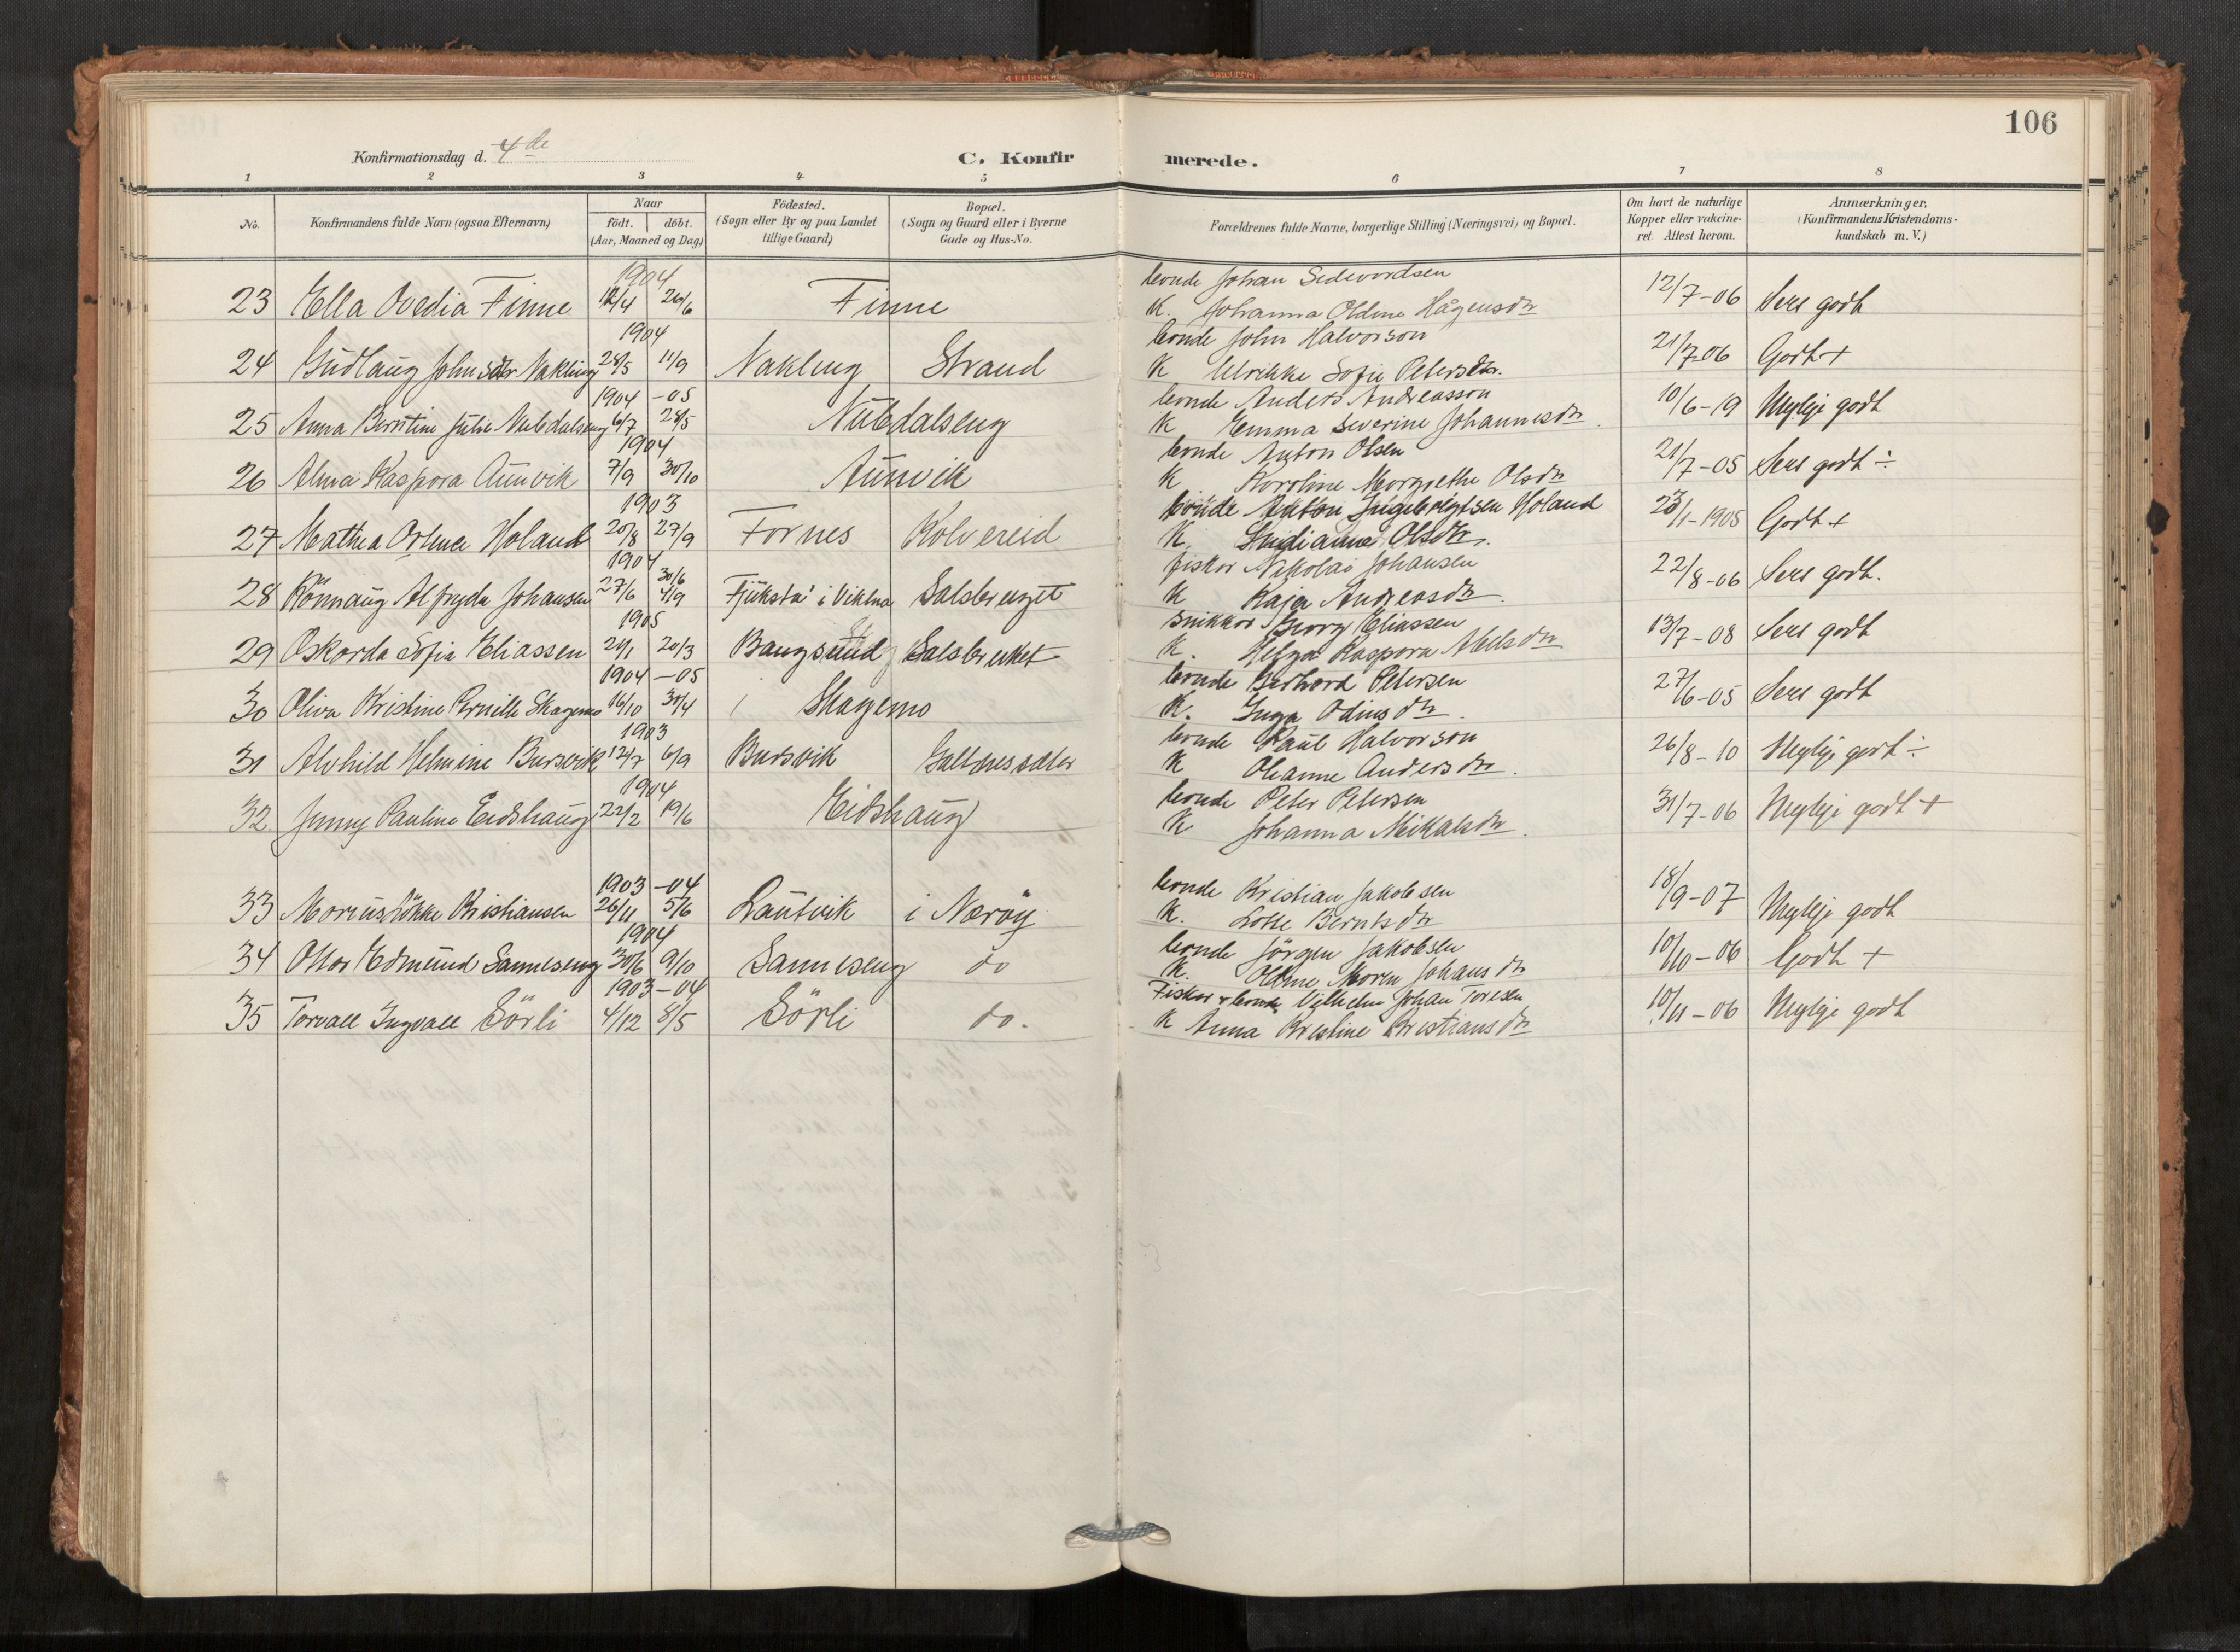 106
Konfirmationsdag d. 4de
C. Konfirmerede.
1 2 3 4 5 6 7 8
No. Konfirmandens fulde Navn (ogsaa Efternavn) Naar födt. döbt. (Aar, Maaned og Dag) Födested. (Sogn eller By og paa Landet tillige Gaard) Bopæl. (Sogn og Gaard eller i Byerne Gade og Hus-No. Forældrenes fulde Navne, borgerlige Stilling (Næringsvei) og Bopæl. Om havt de naturlige Kopper eller vakcineret. Attest herom. Anmærkninger, (Konfirmandens Kristendomskundskab m. V.)
1904 bonde Johan Sedevordsen
23 Ella Ovedia Finne 12/4 26/6 Finne K. Johanna Oldine Hågensdtr 12/7-06 Sers godt
1904 bonde John Halvorson
24 Gudlaug Johnsdtr Nakling 28/5 11/9 Nakling Strand K Ulrikke Sofie Petersdtr. 21/7-06 Godt +
1904 -05 bonde Anders Andreasson
25 Anna Berntine Julie Nubdalseng 6/7 28/5 Nubdalseng K Emma Severine Johannesdtr. 10/6-19 Mylje godt
1904 bonde Anton Olsen
26 Alma Kaspora Aunvik 7/9 30/10 Aunvik K Karoline Morgrethe Olsdtr 21/7-05 Sers godt ÷
1903 bonde Anton Ingebrigtsen Holand
27 Mathea Holand 20/8 27/9 Fornes Kolvereid K. Olsdtr. 23/1-1905 Godt +
1904 fisker Nikolai Johansen
28 Rönnaug Alfryda Johansen 27/6 30/6 4/9 i Vikna Salsbruget K Kaja Andreasdtr 22/8-06 Sers godt.
1905 snikkor Georg Eliassen
29 Oskorda Sofia Eliassen 24/1 20/3 Bangsund Salsbruket K. Helga Kaspora Nelsdtr 13/7-08 Sers godt
1904 -05 bonde Gerhard Petersen
30 Oliva Kristine Pernille Skagemo 16/10 30/4 Skagemo K. Inga Odinsdtr. 27/6-05 Sers godt
1903 bonde Paul Halvorson
31 Alvhild Helmine Bursvik 12/7 6/9 Bursvik K Oleanne Andersdtr. 26/8-10 Mylje godt ÷
1904 bonde Peter Petersen
32 Jenny Pauline Eidshaug 22/2 19/6 Eidshaug K Johanna Mikalsdtr. 31/7-06 Mylje godt +
1903 -04 bonde Kristian Jakobsen
33 Morius Kristiansen 26/11 5/6 Lautvik i Næröy K. Lotte Berntsdtr 18/9-07 Mylje godt
1904 bonde Jörgen Jakobsen
34 Ottar Edmund Sanneseng 30/6 9/10 Sanneseng do K. Oldine Moren Johansdtr 10/10-06 Godt +
1903 -04 Fisker & bonde Vilhelm Johan Toresen
35 Torvall Ingvall Sörli 4/12 8/5 Sörli do. K Anna Kristine Kristiansdtr 10/11-06 Mylje godt